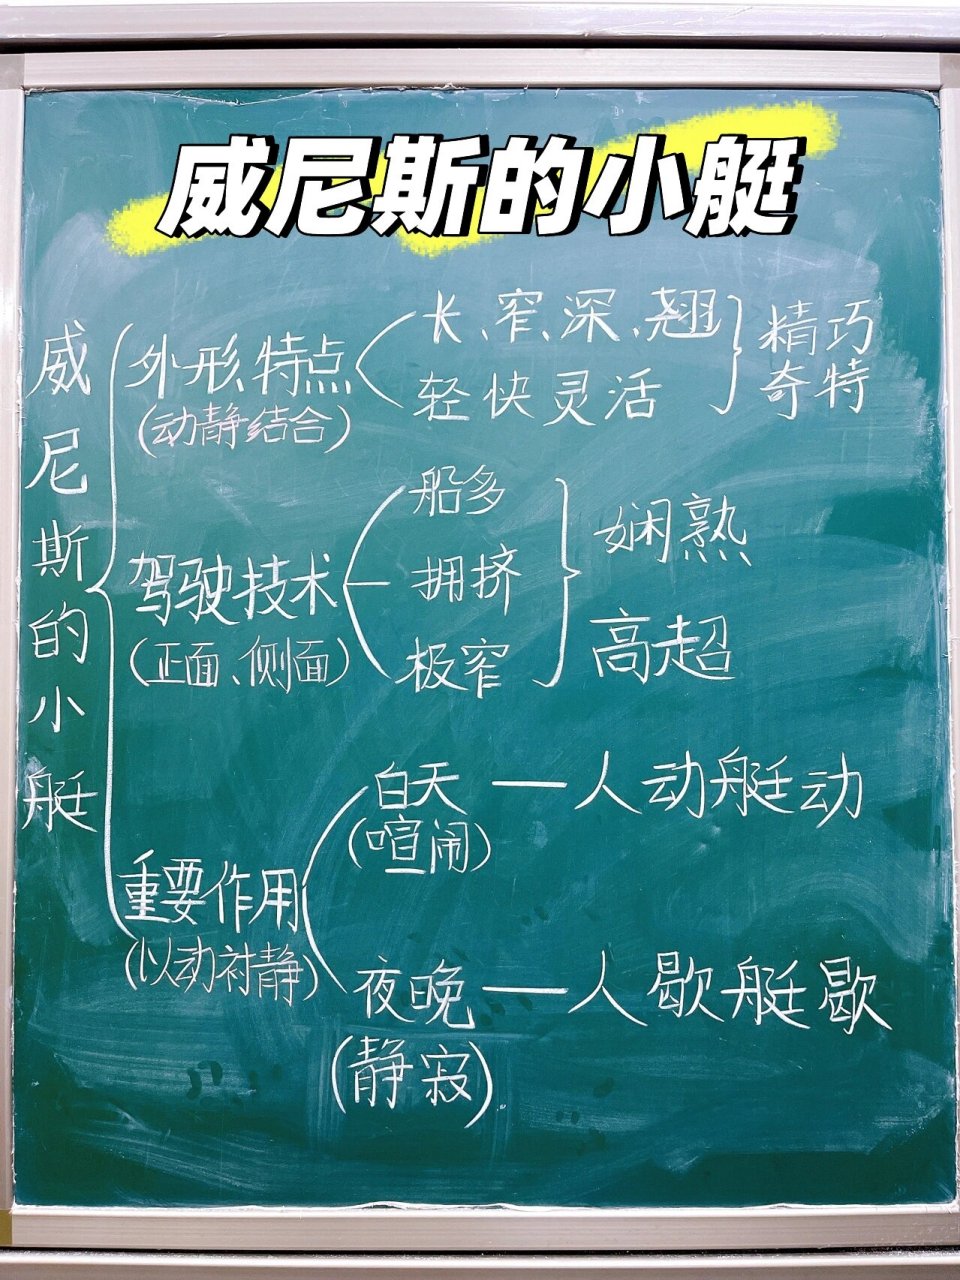 威尼斯的小艇
威尼斯的小艇
外形、特点
(动静结合)
长、窄、深、翘
轻快灵活
精巧
奇特
驾驶技术
(正面、侧面)
船多
拥挤
极窄
娴熟
高超
重要作用
(以动衬静)
白天——人动艇动
(喧闹)
夜晚——人歇艇歇
(静寂)